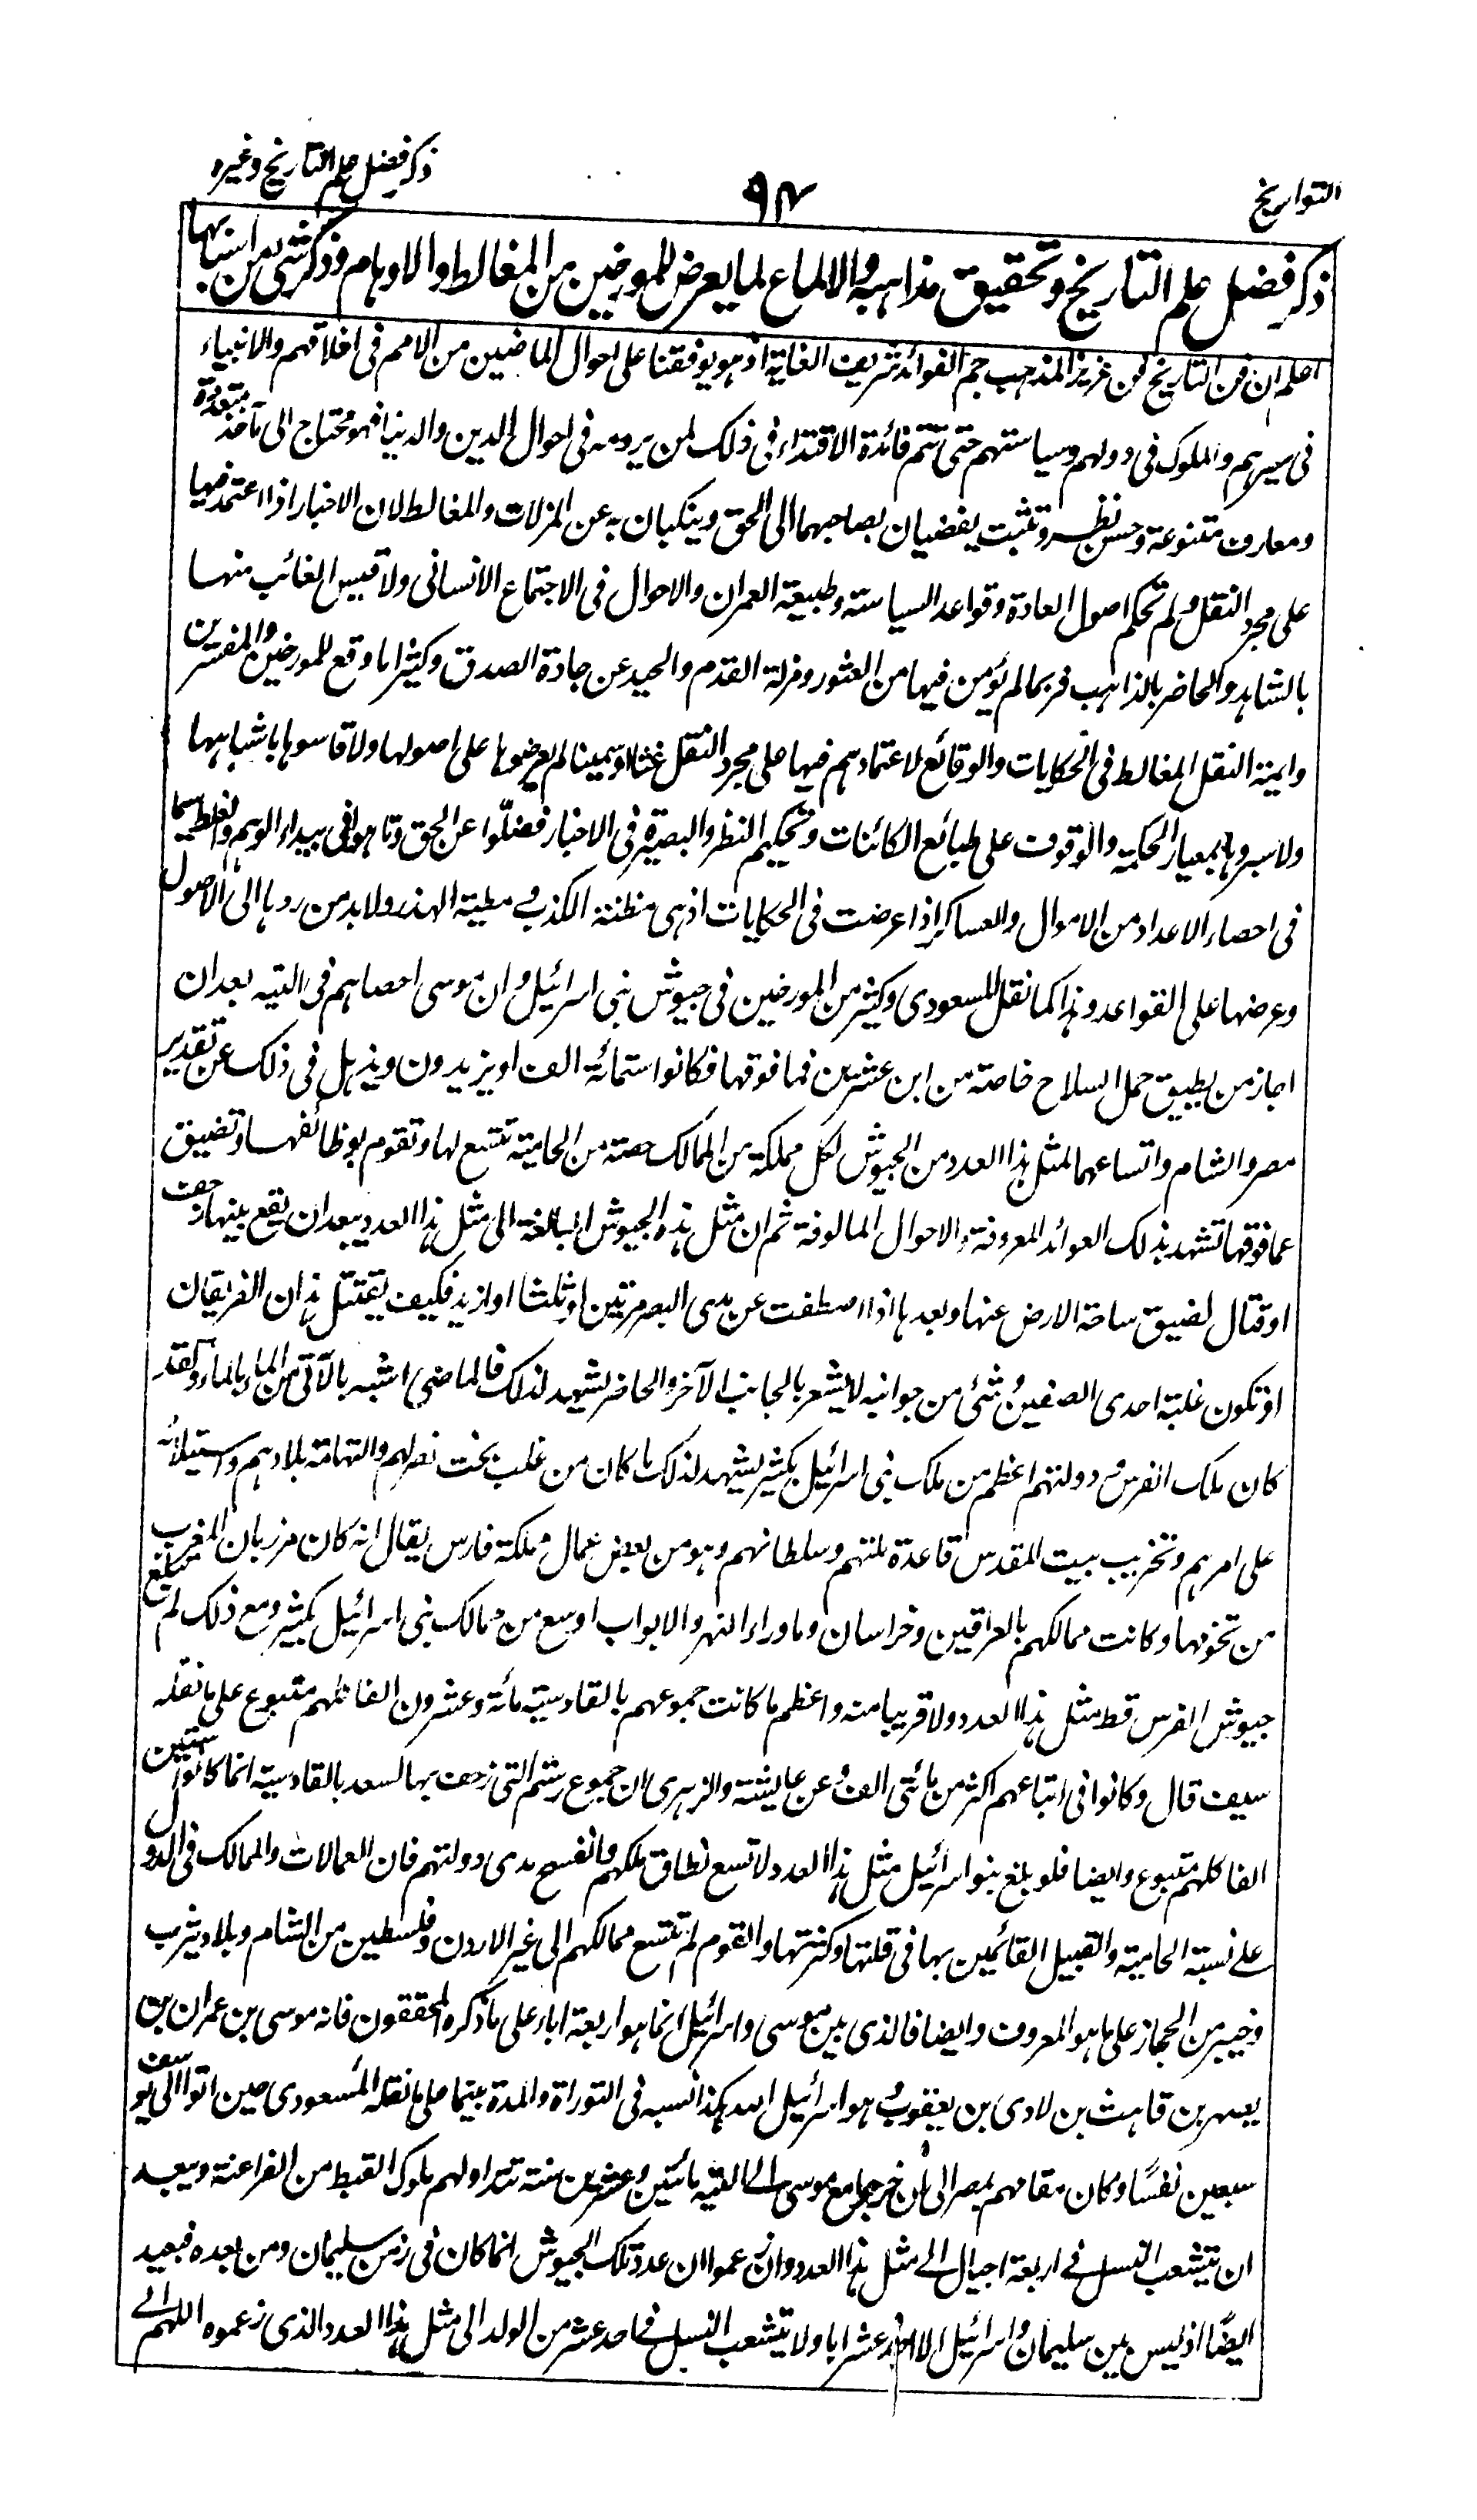 التواريخ
٩٤
ذكر فضل علم التاريخ وغيره
ذكر فضل علم التاريخ وتحقيق مذاهبه والالماع لما يعرض للمورخين من المغالط والاوهام وذكر شئ من اسبابها
اعلم ان فن التاريخ فن عزيز المذهب جم الفوائد شريف الغاية اذ هو يوقفنا على احوال الماضين من الامم فى اخلاقهم والانبياء
فى سيرهم والملوك فى دولهم وسياستهم حتى تتم فائدة الاقتداء فى ذلك لمن يرومه فى احوال الدين والدنيا فهو محتاج الى مآخذ متعددة
ومعارف متنوعة وحسن نظر وتثبت يفضيان بصاحبهما الى الحق وينكبان به عن المزلات والمغالط لان الاخبار اذا اعتمد فيها
على مجرد النقل ولم تحكم اصول العادة وقواعد السياسته وطبيعة العمران والاحوال فى الاجتماع الانسانى ولا قيس الغائب منها
بالشاهد والحاضر بالذاهب فربما لم يؤمن فيها من العثور ومزلة القدم والحيد عن جادة الصدق وكثيرا ما وقع للمورخين والمفسرين
وايمة النقل المغالط فى الحكايات والوقائع لاعتمادهم فيها على مجرد النقل غثا او سمينا لم يعرضوها على اصولها ولا قاسوها باشباهها
ولا سبروها بمعيار الحكمة والوقوف على طبائع الكائنات وتحكيم النظر والبصيرة فى الاخبار فضلّوا عن الحق وتاهوا فى بيداء الوهم والغلط سيما
فى احصاء الاعداد من الاموال والعساكر اذا عرضت فى الحكايات اذ هى مظنة الكذب و مطية الهذر ولا بد من ردها الى الاصول
وعرضها على القواعد وهذا كما نقل للسعودى وكثير من المورخين فى جيوش بنى اسرائيل وان موسى احصاهم فى التيه بعد ان
اجاز من يطيق حمل السلاح خاصة من ابن عشرين فما فوقها فكانوا ستمائة الف او يزيدون ويذهل فى ذلك عن تقدير
مصر والشام واتساعهما لمثل هذا العدد من الجيوش لكل مملكة من الممالك حصة من الحامية تتسع لها وتقوم بوظائفها وتضيق
عما فوقها تشهد بذلك العوائد المعروفة والاحوال المالوفة ثم ان مثل هذه الجيوش البالغة الى مثل هذا العدد يبعد ان يقع بينها زحف
او قتال لضيق ساحة الارض عنها وبعدها اذا اصطفت عن مدى البصر مرتين او ثلثا او ازيد فكيف يقتتل هذان الفريقان
او تكون غلبة احدى الصفين و شئ من جوانبه لا يشعر بالجانب الآخر والحاضر يشهد لذلك فالماضى اشبه بالآتى من الماء بالماء ولقد
كان ملك الفرس و دولتهم اعظم من ملك بنى اسرائيل بكثير يشهد لذلك ما كان من غلب بخت نصر لهم والتهامه بلادهم واستيلائه
على امرهم وتخريب بيت المقدس قاعدة ملتهم وسلطانهم وهو من بعض عمال مملكة فارس يقال انه كان مرزبان المغرب
من تخومها وكانت ممالكهم بالعراقين وخراسان وماوراء النهر والابواب اوسع من ممالك بنى اسرائيل بكثير ومع ذلك لم تبلغ
جيوش الفرس قط مثل هذا العدد ولا قريبا منه واعظم ما كانت جموعهم بالقادسية مائة وعشرون الفا كلهم متبوع على ما نقله
سيف قال وكانوا فى اتباعهم اكثر من مائتى الف و عن عايشة والزهرى ان جموع رستم التى زحف بها لسعد بالقادسية انما كانوا ستين
الفا كلهم متبوع وايضا فلو بلغ بنو اسرائيل مثل هذا العدد لاتسع نطاق ملكهم وانفسح مدى دولتهم فان العمالات والممالك فى الدول
على نسبة الحامية والقبيل القائمين بها فى قلتها وكثرتها والقوم لم تتسع ممالكهم الى غير الاردن وفلسطين من الشام وبلاد يثرب
وخيبر من الحجاز على ما هو المعروف وايضا فالذى بين موسى واسرائيل انما هو اربعة اباء على ما ذكره المحققون فانه موسى بن عمران بن
يصهر بن قاهث بن لادى بن يعقوب و هو اسرائيل الله هكذا نسبه فى التوراة والمدة بينهما على ما نقله المسعودى حين اتوا الى يوسف
سبعين نفسًا وكان مقامهم بمصر الى ان خرجوا مع موسى الى التيه مائتين وعشرين سنة تتداولهم ملوك القبط من الفراعنة ويبعد
ان يتشعب النسل فى اربعة اجيال الى مثل هذا العدد وان زعموا ان عدد تلك الجيوش انما كان فى زمن سليمان ومن بعده فبعيد
ايضًا اذ ليس بين سليمان و اسرائيل الا احد عشر ابا ولا يتشعب النسل فى احد عشر من الولد الى مثل هذا العدد الذى زعموه اللهم الى